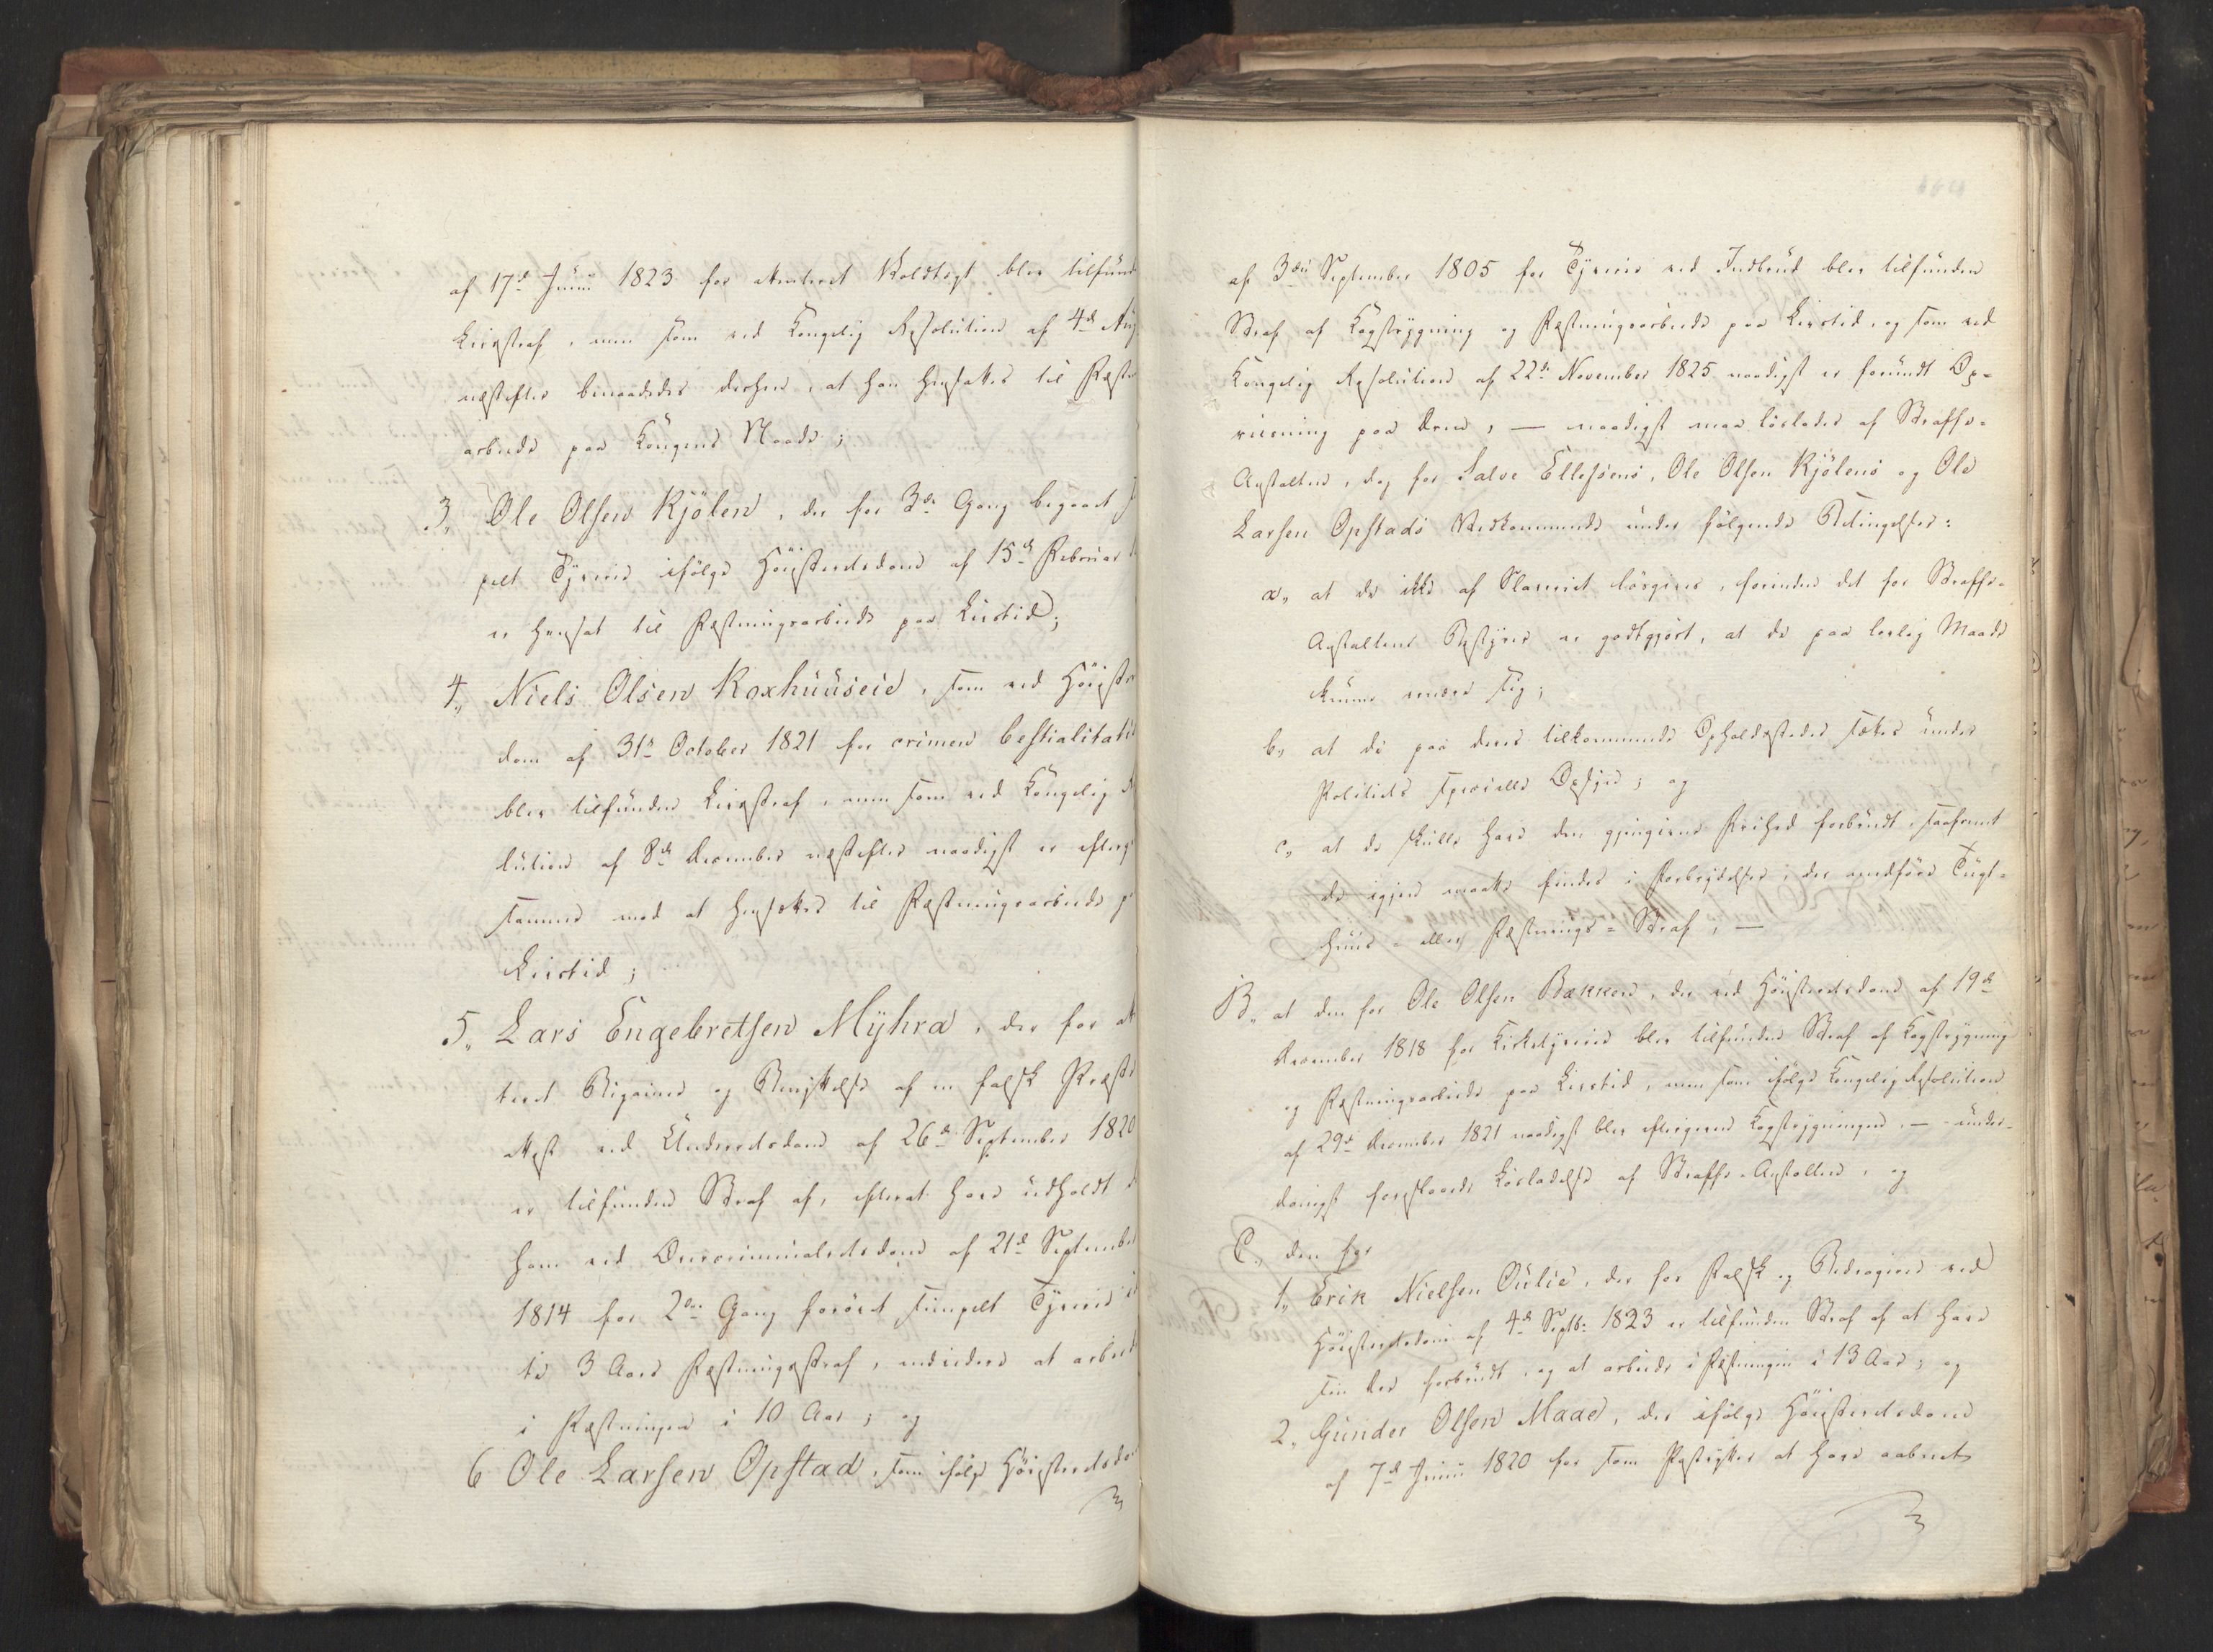 af 17d Junii 1823 for attenteret Voldtægt blev tilfund
Livsstraf, men som ved Kongelig Resolution af 4d Aug
næstefter benaadedes derhen, at han hensattes til Fæst
arbeide paa Kongens Naade;
3, Ole Olsen Kjölen, der for 3die Gang begaaet
pelt Tyverie ifölge Höiesteretsdom af 15de Februar
er hensat til Fæstningsarbeide paa Livstid;
4, Niels Olsen Roxhuuseie, som ved Höieste
dom af 31te October 1821 for crimen bestialitati
blev tilfunden Livsstraf, men som ved Kongelig
lution af 8de December næstefter naadigst er efterg
sammes mod at hensættes til Fæstningsarbeide p
Livstid;
5, Lars Engebretsen Myhra, der for at
teret Bigamie og Benyttelse af en falsk Præste
attest ved Underretsdom af 26de September 1820
er tilfunden Straf af, efterat have udholdt
ham ved Overcriminalretsdom af 21de September
1814 for 2den Gang forövet simpelt Tyverie
te 3 Aars Fæstningsstraf, endvidere at arbeide
i Fæstningen i 10 Aar; og
6 Ole Larsen Opstad, som ifölge Höiesteretsdo
af 3die September 1805 for Tyverie ved Indbrud blev tilfunden
Straf af Kagstrygning og Fæstningsarbeide paa Livstid, og som ved
Kongelig Resolution af 22de November 1825 naadigst er forundt Op-
reisning paa Æren, — naadigst maa löslades af Straffe-
Anstalten, dog for Salve Ellefsens, Ole Olsen Kjölens og Ole
Larsen Opstads Vedkommende under fölgende Betingelser:
a, at de ikke af Slaveriet lösgives, forinden det for Straffe-
Anstaltens Bestyrer er godtgjort, at de paa lovlig Maade
kunne ernære sig;
b, at de paa deres tilkommende Opholdssteder sættes under
Politiets specielle Opsyn; og
c, at de skulle have den gjengivne Frihed forbrudt, saafremt
de igjen maatte findes i Forbrydelser, der medföre Tugt-
huus- eller Fæstnings-Straf; —
B, at den for Ole Olsen Bækken, der ved Höiesteretsdom af 19de
December 1818 for Kirketyverie blev tilfunden Straf af Kagstrygning
og Fæstningsarbeide paa Livstid, men som ifölge Kongelig Resolution
af 29de December 1821 naadigst blev eftergiven Kagstrygningen, — under-
danigst foreslaaede Lösladelse af Straffe-Anstalten, og
C, den for
1, Erik Nielsen Oulie, der for Falsk og Bedragerie ved
Höiesteretsdom af 4de Septbr 1823 er tilfunden Straf af at have
sin Ære forbrudt, og at arbeide i Fæstningen i 13 Aar; og
2, Gunder Olsen Maae, der ifölge Höiesteretsdom
af 7de Junii 1820 for som Postrytter at have aabnet